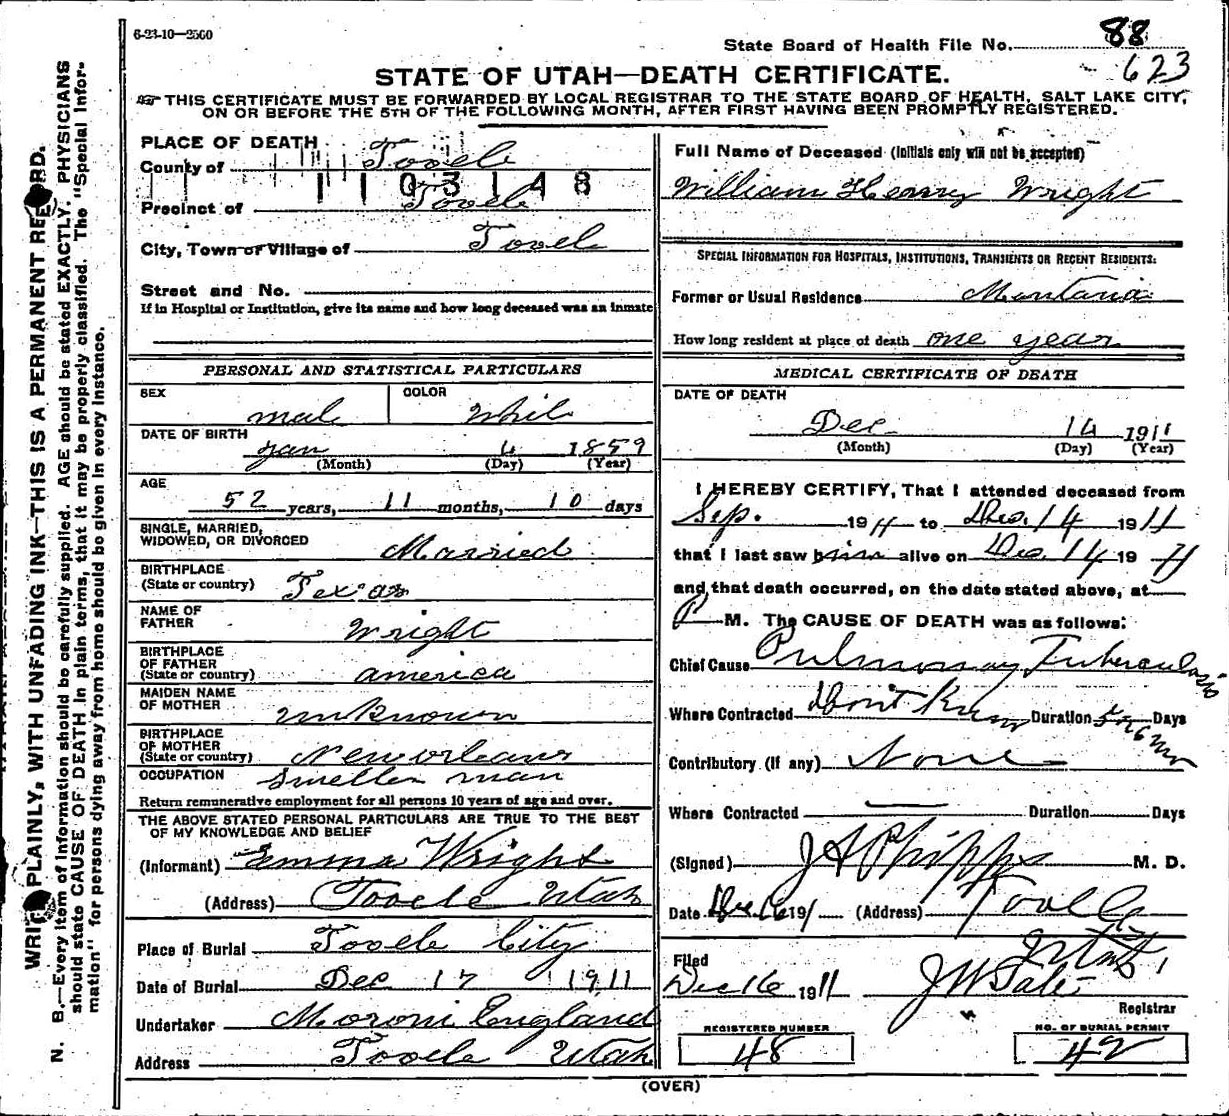 6-23-10—2500
State Board of Health File No. 88
623
STATE OF UTAH—DEATH CERTIFICATE.
THIS CERTIFICATE MUST BE FORWARDED BY LOCAL REGISTRAR TO THE STATE BOARD OF HEALTH, SALT LAKE CITY,
ON OR BEFORE THE 5TH OF THE FOLLOWING MONTH, AFTER FIRST HAVING BEEN PROMPTLY REGISTERED.
WRITE PLAINLY, WITH UNFADING INK—THIS IS A PERMANENT RECORD.
N. B.—Every item of information should be carefully supplied. AGE should be stated EXACTLY. PHYSICIANS
should state CAUSE OF DEATH in plain terms, that it may be properly classified. The "Special Infor-
mation" for persons dying away from home should be given in every instance.
PLACE OF DEATH
County of Tooele
1103148
Precinct of Tooele
City, Town or Village of Tooele
Street and No.
If in Hospital or Institution, give its name and how long deceased was an inmate
PERSONAL AND STATISTICAL PARTICULARS
SEX male COLOR White
DATE OF BIRTH Jan 4 1859
(Month) (Day) (Year)
AGE
52 years, 11 months, 10 days
SINGLE, MARRIED,
WIDOWED, OR DIVORCED Married
BIRTHPLACE
(State or country) Texas
NAME OF
FATHER Wright
BIRTHPLACE
OF FATHER
(State or country) america
MAIDEN NAME
OF MOTHER unknown
BIRTHPLACE
OF MOTHER
(State or country) New orleans
OCCUPATION Smelter man
Return remunerative employment for all persons 10 years of age and over.
THE ABOVE STATED PERSONAL PARTICULARS ARE TRUE TO THE BEST
OF MY KNOWLEDGE AND BELIEF
(Informant) Emma Wright
(Address) Tooele Utah
Place of Burial Tooele City
Date of Burial Dec 17 1911
Undertaker Moroni England
Address Tooele Utah
Full Name of Deceased (Initials only will not be accepted)
William Henry Wright
SPECIAL INFORMATION FOR HOSPITALS, INSTITUTIONS, TRANSIENTS OR RECENT RESIDENTS:
Former or Usual Residence Montana
How long resident at place of death one year
MEDICAL CERTIFICATE OF DEATH
DATE OF DEATH
Dec 14 1911
(Month) (Day) (Year)
I HEREBY CERTIFY, That I attended deceased from
Sep. 1911 to Dec. 14 1911
that I last saw him alive on Dec 14 1911
and that death occurred, on the date stated above, at
P M. The CAUSE OF DEATH was as follows:
Chief Cause Pulmonary Tuberculosis
Where Contracted Dont Know Duration 5 or 6 mo Days
Contributory (if any) None
Where Contracted Duration Days
(Signed) J A Phipps M. D.
Date Dec 16 191 (Address) Tooele
Utah
Filed
Dec 16 1911 J W Tate
Registrar
REGISTERED NUMBER
48
NO. OF BURIAL PERMIT
42
(OVER)